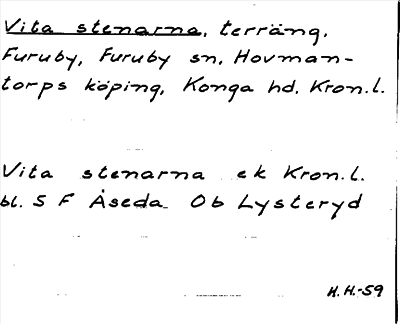 Vita stenarna, terräng,
Furuby, Furuby sn, Hovman-
torps köping, Konga hd, Kron.l.
Vita stenarna ek Kron.l.
bl. 5 F Åseda Ob Lysteryd
H.H.-59